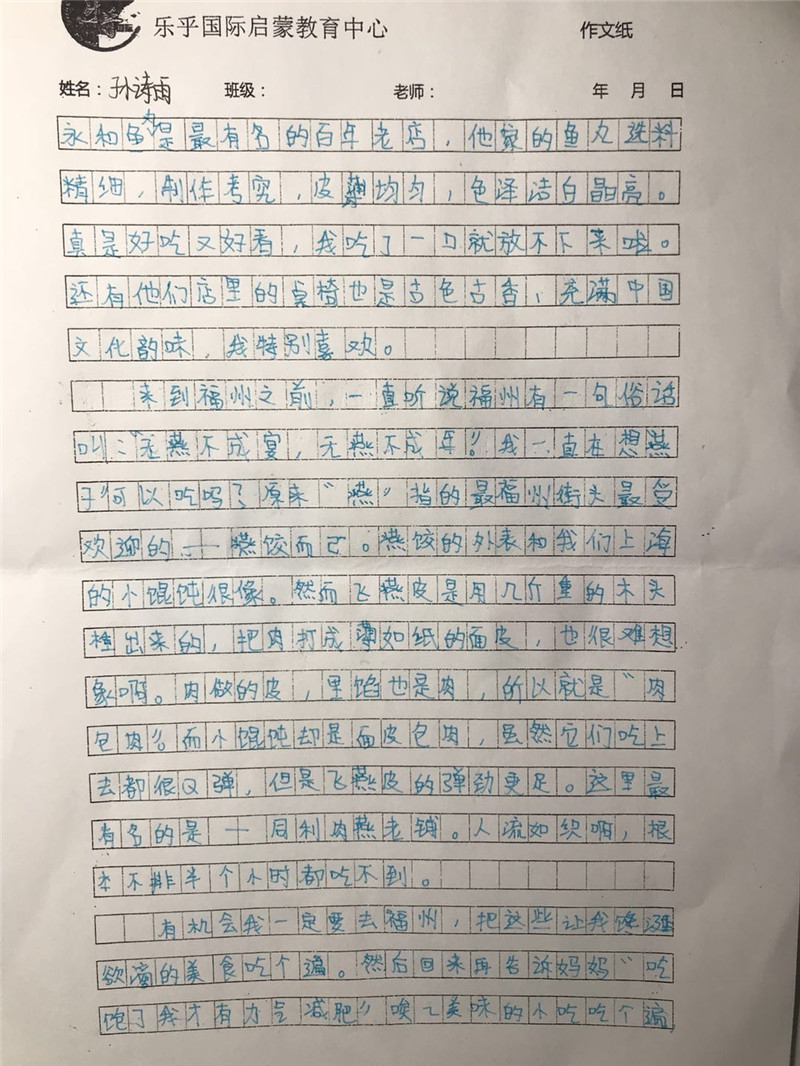 乐乎国际启蒙教育中心 作文纸
姓名：孙诗雨 班级： 老师： 年 月 日
永和鱼丸是最有名的百年老店，他家的鱼丸选料
精细，制作考究，皮薄均匀，色泽洁白晶亮。
真是好吃又好看，我吃了一口就放不下来啦。
还有他们店里的桌椅也是古色古香、充满中国
文化韵味，我特别喜欢。
来到福州之前，一直听说福州有一句俗话
叫：“无燕不成宴，无燕不成年”。我一直在想燕
子”可以吃吗？原来“燕”指的最福州街头最受
欢迎的——燕饺而已。燕饺的外表和我们上海
的小馄饨很像。然而飞燕皮是用几斤重的木头
棰出来的，把肉打成薄如纸的面皮，也很难想
象啊。肉做的皮，里馅也是肉，所以就是“肉
包肉”。而小馄饨却是面皮包肉，虽然它们吃上
去都很Q弹，但是飞燕皮的弹劲更足。这里最
有名的是——同利肉燕老铺。人流如织啊，根
本不排半个小时都吃不到。
有机会我一定要去福州，把这些让我馋涎
欲滴的美食吃个遍。然后回来再告诉妈妈“吃
饱了我才有力气减肥”唉~美味的小吃吃个遍